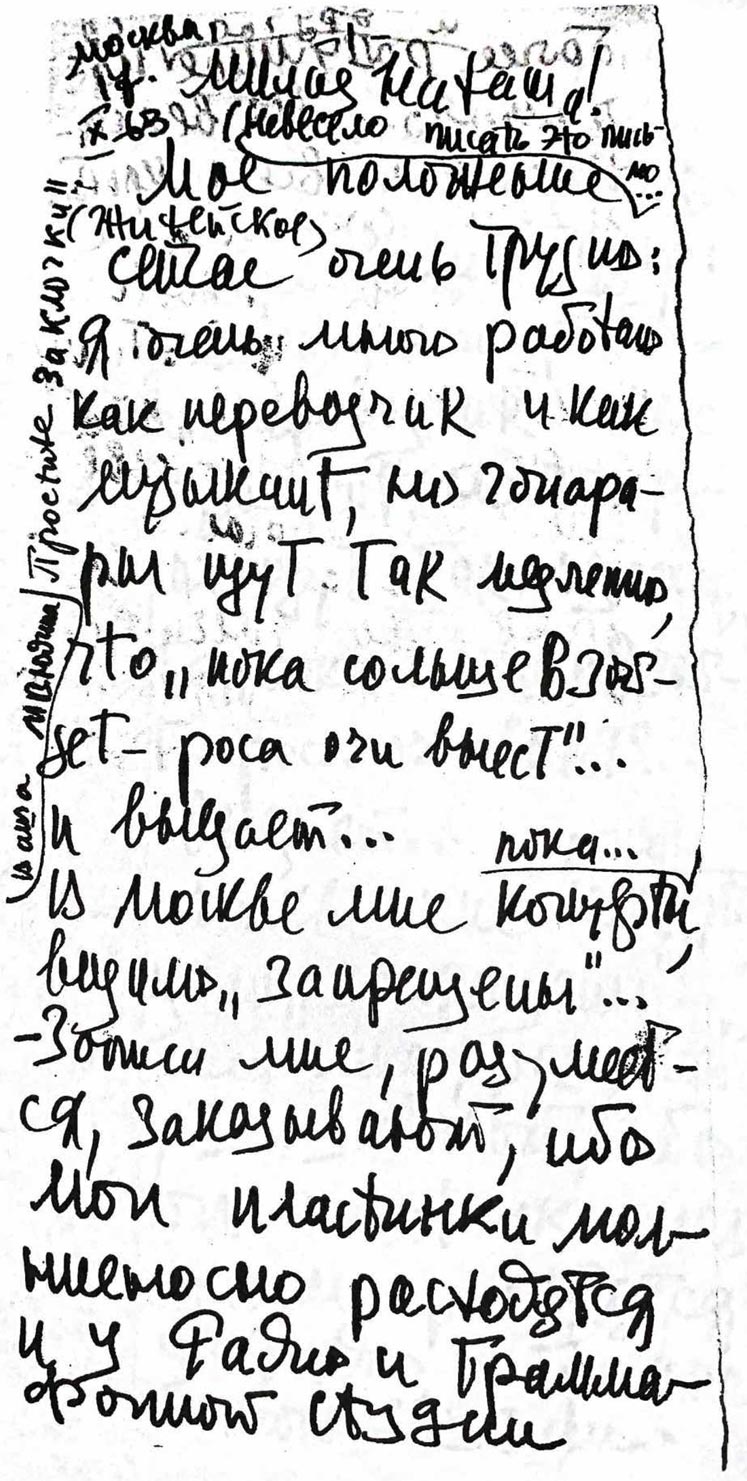 Москва,
19.
IX 63
Милая Наташа!
(невесело писать это пись-
мо...
Мое положение
(житейское)
сейчас очень трудно:
я очень много работаю
как переводчик и как
музыкант, но гонора-
ры идут так медленно,
что „пока солнце взой-
дет – роса очи выест"...
и выедает...
пока...
В Москве мне концерты,
видимо, „запрещены"...
– Записи мне, разумеет-
ся, заказывают, ибо
мои пластинки мол-
ниеносно расходятся
и у Радио и Грамма-
фонной студии
Простите за „клочки"
Ваша МВЮдина